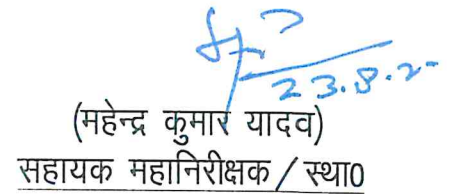 23.8.2
(महेन्द्र कुमार यादव)
सहायक महानिरीक्षक / स्था0